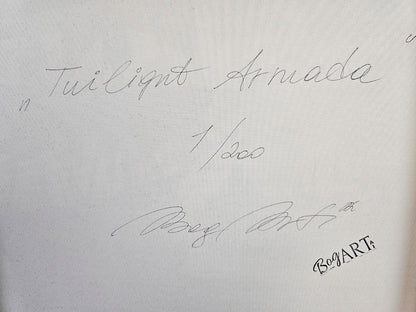 „Twilight Armada“
1/200
Bog Arti
BogARTi